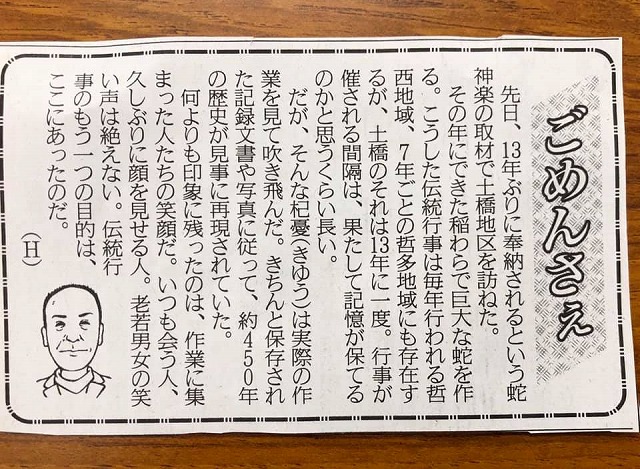 ごめんさぇ
先日、13年ぶりに奉納されるという蛇
神楽の取材で土橋地区を訪ねた。
その年にできた稲わらで巨大な蛇を作
る。こうした伝統行事は毎年行われる哲
西地域、7年ごとの哲多地域にも存在す
るが、土橋のそれは13年に一度。行事が
催される間隔は、果たして記憶が保てる
のかと思うくらい長い。
だが、そんな杞憂(きゆう)は実際の作
業を見て吹き飛んだ。きちんと保存され
た記録文書や写真に従って、約450年
の歴史が見事に再現されていた。
何よりも印象に残ったのは、作業に集
まった人たちの笑顔だ。いつも会う人、
久しぶりに顔を見せる人。老若男女の笑
い声は絶えない。伝統行
事のもう一つの目的は、
ここにあったのだ。
(H)